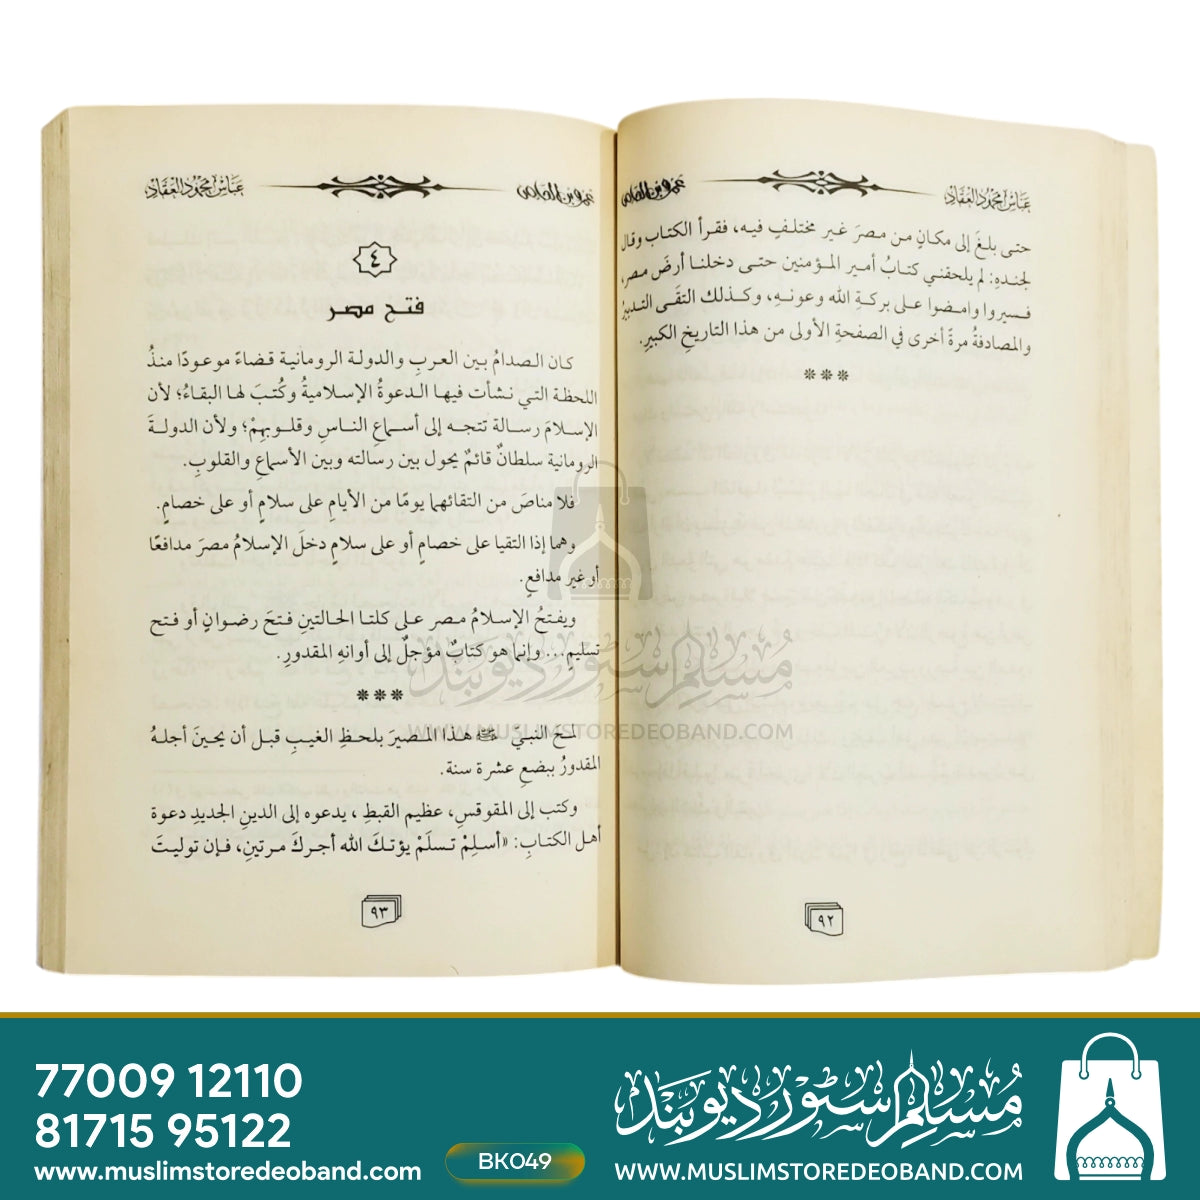 عمرو بن العاص
عباس محمود العقاد
حتى بلغَ إلى مكانٍ من مصرَ غير مختلفٍ فيه، فقرأ الكتاب وقال
لجندهِ: لم يلحقني كتابُ أمير المؤمنين حتى دخلنا أرضَ مصر،
فسيروا وامضوا على بركةِ الله وعونهِ، وكذلك التقَى التدبيرُ
والمصادفةُ مرةً أخرى في الصفحةِ الأولى من هذا التاريخِ الكبيرِ.
***
٩٢
عمرو بن العاص
عباس محمود العقاد
٤
فتح مصر
كان الصدامُ بين العربِ والدولة الرومانية قضاءً موعودًا منذُ
اللحظة التي نشأت فيها الدعوةُ الإسلاميةُ وكُتبَ لها البقاءُ؛ لأن
الإسلامَ رسالة تتجه إلى أسماعِ الناسِ وقلوبهِمْ؛ ولأن الدولةَ
الرومانية سلطانٌ قائمٌ يحول بين رسالته وبين الأسماعِ والقلوبِ.
فلا مناصَ من التقائهما يومًا من الأيامِ على سلامٍ أو على خصامٍ.
وهما إذا التقيا على خصامٍ أو على سلامٍ دخلَ الإسلامُ مصرَ مدافعًا
أو غير مدافعٍ.
ويفتحُ الإسلامُ مصر على كلتا الحالتينِ فتحَ رضوانٍ أو فتح
تسليمٍ... وإنما هو كتابٌ مؤجلٌ إلى أوانهِ المقدورِ.
***
لمح النبي ﷺ هذا المصيرَ بلحظِ الغيبِ قبل أن يحينَ أجلهُ
المقدورُ ببضعِ عشرة سنة.
وكتب إلى المقوقسِ، عظيم القبطِ، يدعوه إلى الدينِ الجديدِ دعوة
أهل الكتابِ: «أسلِمْ تسلَمْ يؤتكَ الله أجركَ مرتينِ، فإن توليتَ
٩٣
مسلم سٹور دیوبند
WWW.MUSLIMSTOREDEOBAND.COM
77009 12110
81715 95122
www.muslimstoredeoband.com
BK049
مسلم سٹور دیوبند
WWW.MUSLIMSTOREDEOBAND.COM